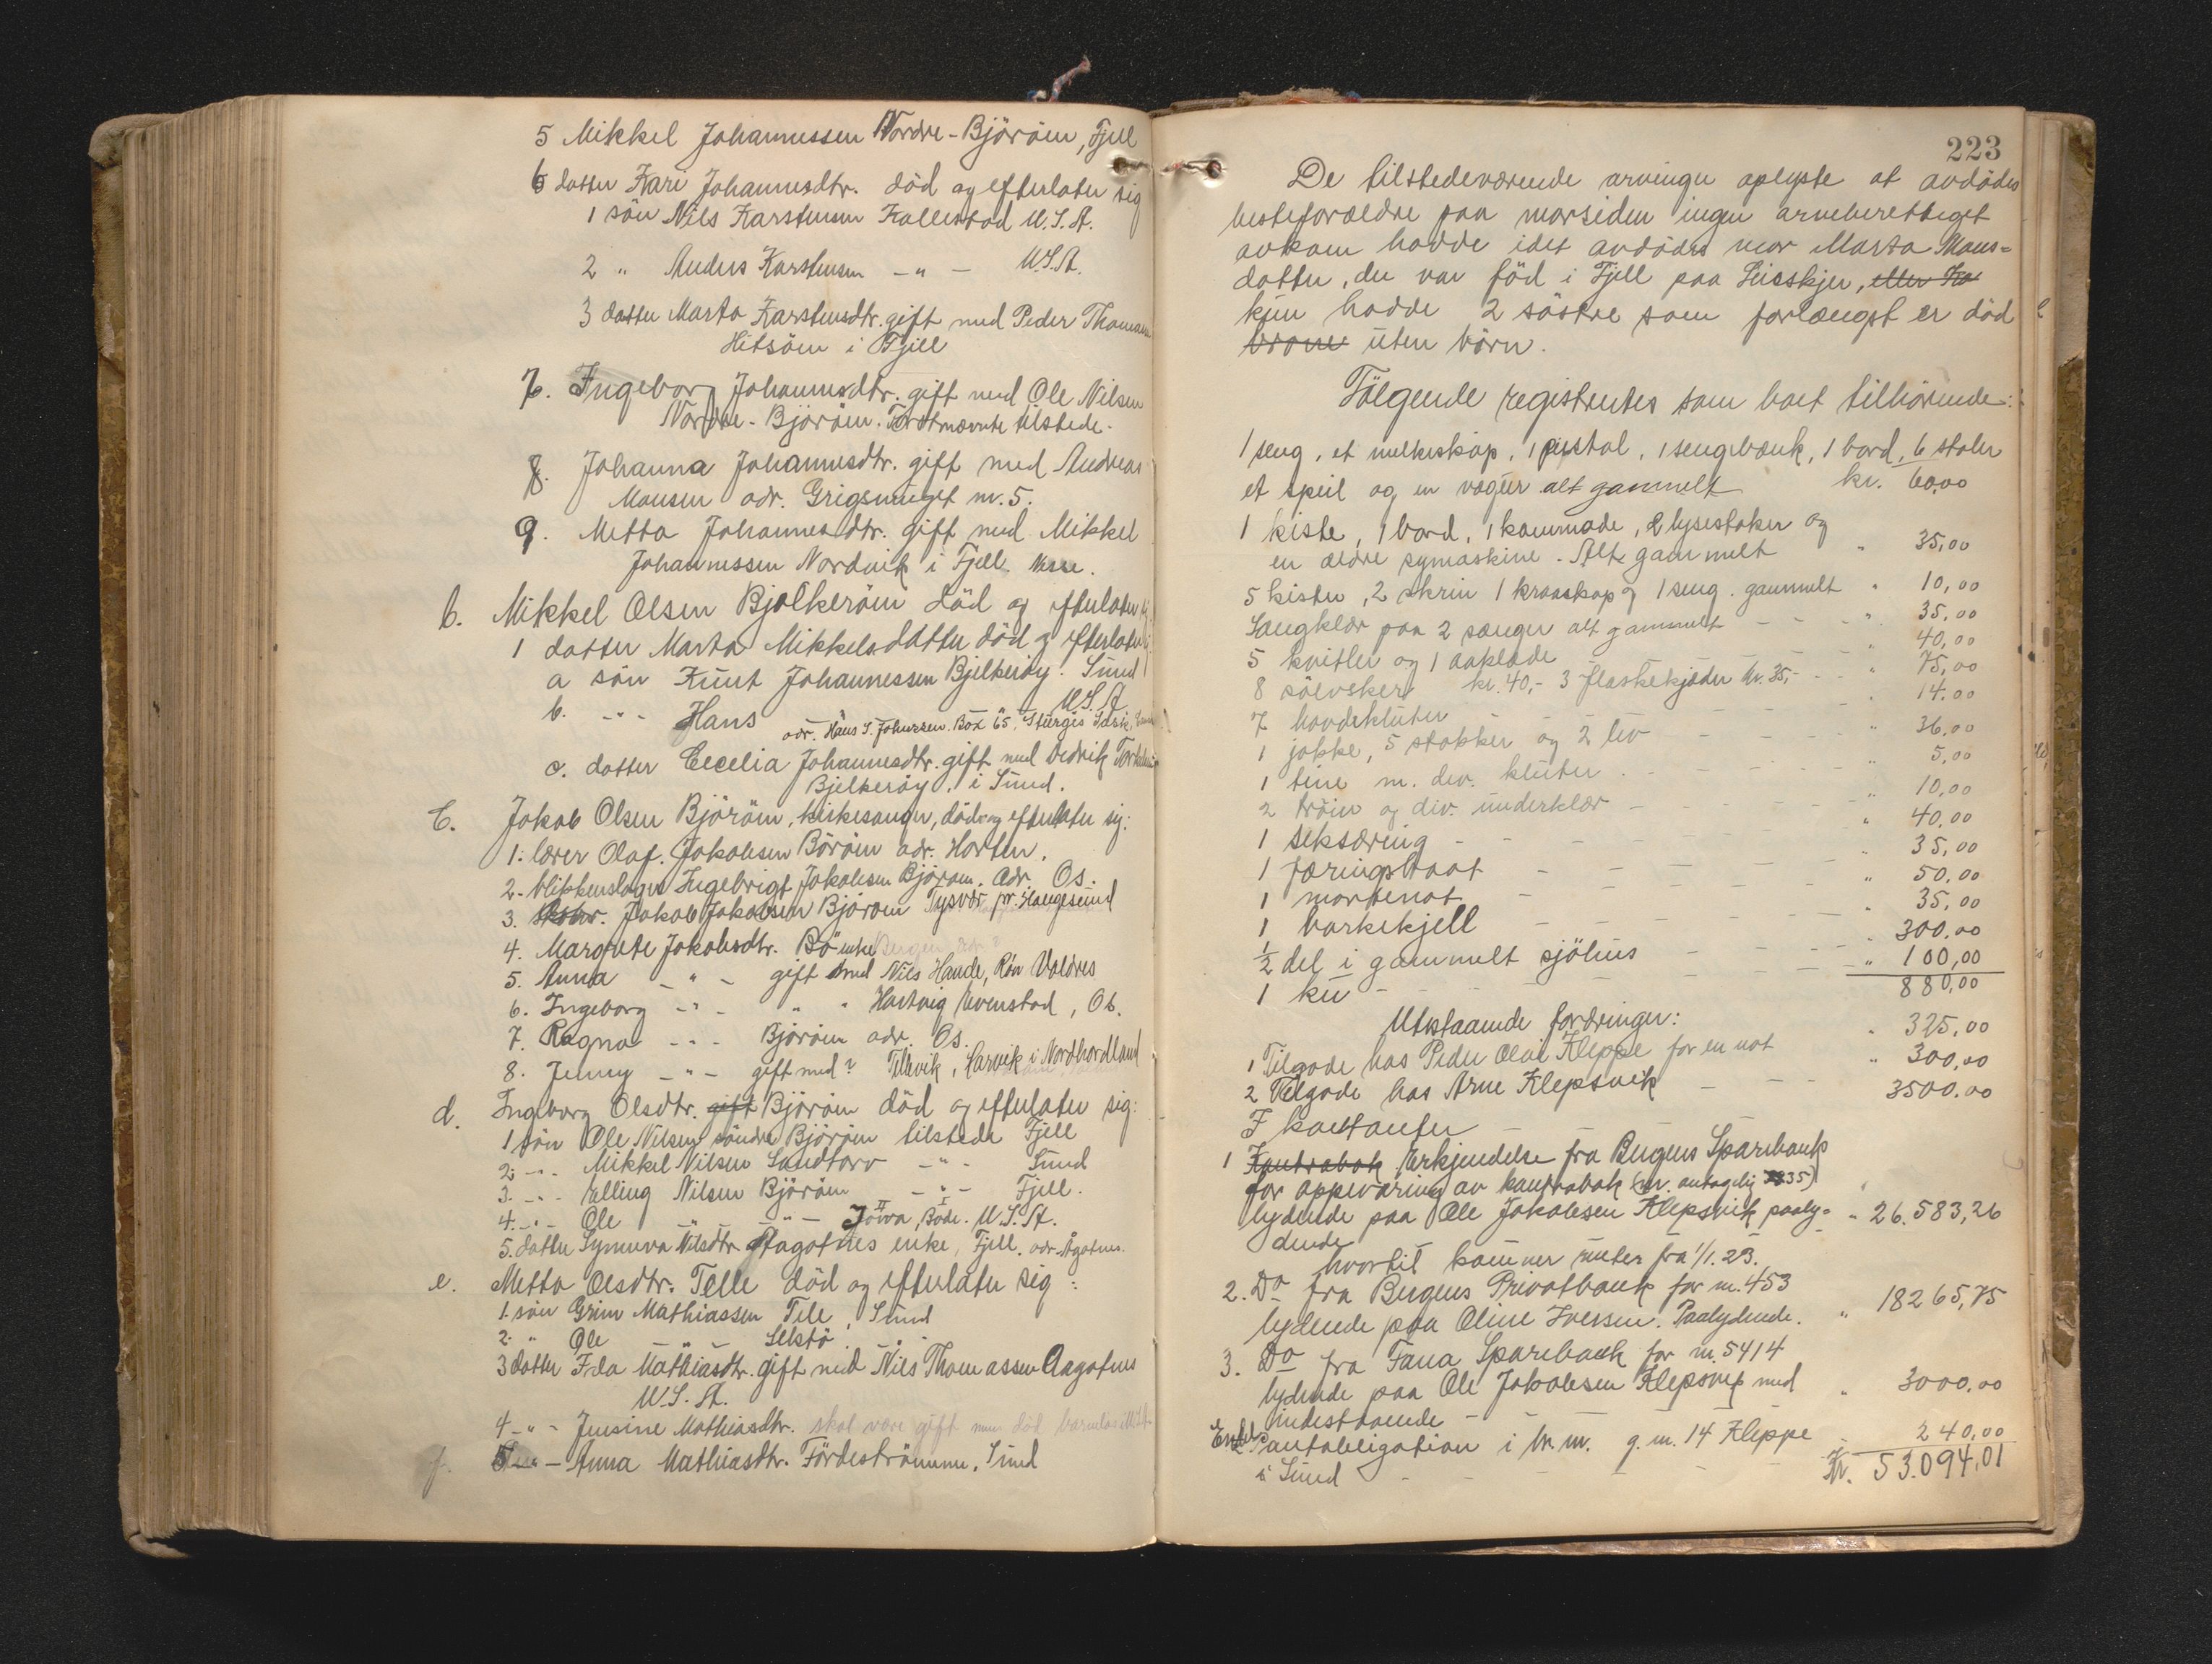 5 Mikkel Johannessen Nordre-Björöen, Fjell
6 datter Kari Johannesdtr. död og efterlater sig
1 sön Nils Karstensen Kallestad U.S.A.
2 " Anders Karstensen -"- U.S.A.
3 datter Marta Karstensdtr. gift med Peder Thomassen
Hitsöen i Fjell
7. Ingeborg Johannesdtr. gift med Ole Nilsen
Nordre-Björöen. Förstnævnte tilstede.
8. Johanna Johannesdtr. gift med Andreas
Monsen adr. Grigsmuget nr. 5.
9. Metta Johannesdtr. gift med Mikkel
Johannessen Nordvik i Fjell.
b. Mikkel Olsen Bjelkeröen död og efterlater sig
1 datter Marta Mikkelsdatter död og efterlater sig
a sön Knut Johannessen Bjelkeröy. Sund
b. -"- Hans U.S.A.
adr. Hans J. Johnssen. Box 65. Sturgis
c. datter Cecelia Johannesdtr. gift med Vedrik
Bjelkeröy, i Sund.
c. Jakob Olsen Björöen, kirkesanger, död og efterlater sig:
1. lærer Olaf. Jakobsen Böröen adr. Horten.
2. blikkenslager Ingebrigt Jakobsen Björöen. Adr. Os.
3. Jakob Jakobsen Björöen Tysvær pr. Haugesund
4. Margrete Jakobsdtr. Bö enke Bergen, adr. ?
5. Anna -"- gift med Nils Haude, Røn Valdres
6. Ingeborg -"- " " Hartvig Evenstad, Os.
7. Ragna -"- Björöen adr. Os.
8. Jenny -"- gift med ? Tellevik, Larvik i Nordhordland
d. Ingeborg Olsdtr. gift Björöen död og efterlater sig:
1 sön Ole Nilsen söndre Björöen tilstede Fjell
2. -"- Mikkel Nilsen Landtorv -"- Sund
3. -"- Elling Nilsen Björöen -"- Fjell.
4. -"- Ole -"- -"- Iowa, Bode. U.S.A.
5. datter Synneva Nilsdtr. Aagotnes enke, Fjell. adr. Ågotnes.
e. Metta Olsdtr. Telle död og efterlater sig:
1. sön Grim Mathiassen Telle, Sund
2. " Ole -"- Selstö -"-
3 datter Frda Mathiasdtr. gift med Nils Thomassen Aagotnes
U.S.A.
4 -"- Jensine Mathiasdtr. skal være gift men död barnlös
5 -"- Anna Mathiasdtr. Fördeströmmen, Sund
223
De tilstedeværende arvinger oplyste at avdödes
besteforældre paa morsiden ingen arveberettiget
avkom hadde idet avdödes mor Marta Mons-
datter, der var föd i Fjell paa Liaskjer, eller
kun hadde 2 söstre som forlængst er död
uten börn.
Fölgende registrertes som boet tilhörende:
1 seng, et melkeskap, 1 pistol, 1 sengebænk, 1 bord, 6 stoler
et speil og en vogur alt gammelt kr. 60,00
1 kiste, 1 bord, 1 kommode, 2 lysestaker og
en ældre symaskine. Alt gammelt " 35,00
5 kister, 2 skrin 1 kravskap og 1 seng. gammelt " 10,00
Sengklær paa 2 senger alt gammelt - - " 35,00
5 kvitler og 1 aaklæde - - " 40,00
8 sölvskeer kr. 40,- 3 flaskekjæder kr. 35,- - " 75,00
7 hovdekluter - - - " 14.00
1 jakke, 5 stakker og 2 liv - - - " 36,00
1 tine m. div. kluter - - - " 5,00
2 tröier og div. underklær - - - " 10,00
1 seksæring - - - " 40,00
1 færingsbaat - - - " 35,00
1 mortenot - - - " 50,00
1 barkekjell - - - " 35,00
1/2 del i gammelt sjöhus - - - " 300,00
1 ku - - - " 100,00
880,00
Utestaaende fordringer:
1 Tilgode hos Peder Olai Kleppe for en not " 325,00
2 Tilgode hos Arne Klepsvik - - " 300,00
I kontanter - - 3500.00
1 Kontrabok Erkjendelse fra Bergens Sparebank
for oppevaring av kontrabok (nr. antagelig 35)
lydende paa Ole Jakobsen Klepsvik paaly- " 26.583,26
dende
hvortil kommer renter fra 1/1. 23.
2. Do fra Bergens Privatbank for nr. 453
lydende paa Oline Iversen. Paalydende. " 18265,75
3. Do fra Fana Sparebank for nr. 5414
lydende paa Ole Jakobsen Klepsvik med
indestaaende - " 3000,00
Endel Pantobligation i br. nr. g. nr. 14 Kleppe
i Sund - - - 240,00
Kr. 53.094,01